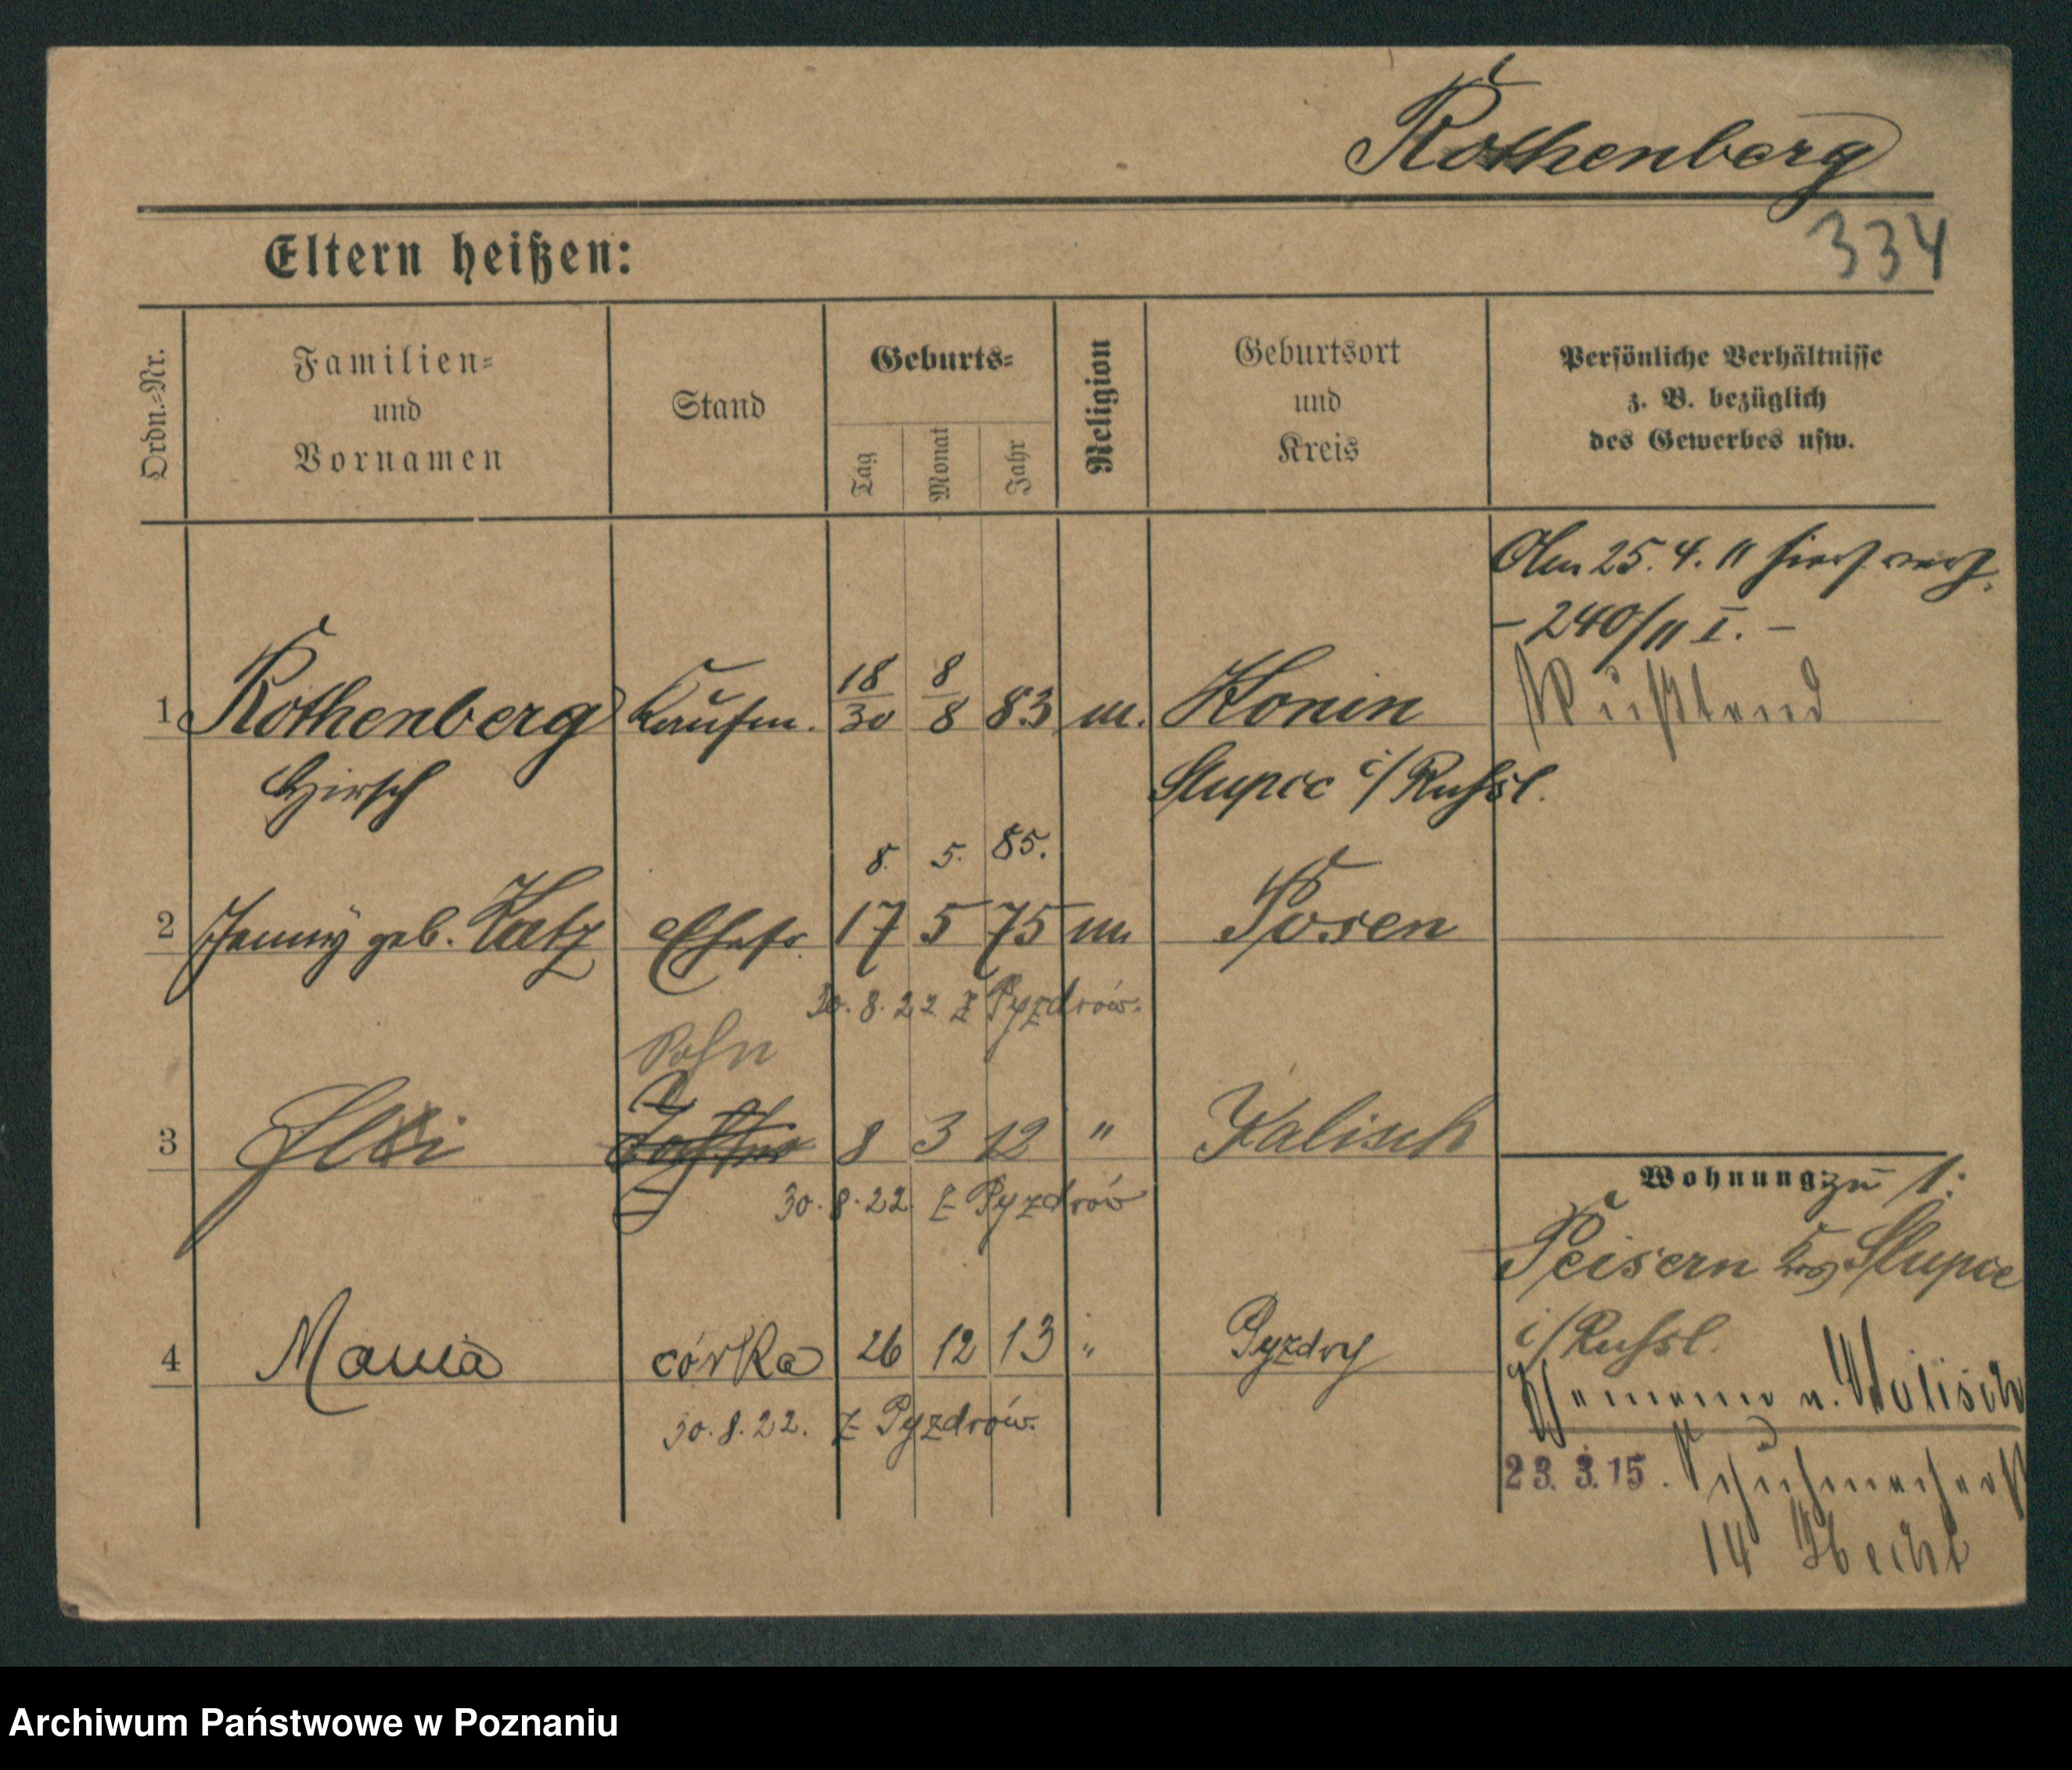 Rothenberg
334
Eltern heißen:
Ordn.=Nr.
Familien=
und
Vornamen
Stand
Geburts=
Tag
Monat
Jahr
Religion
Geburtsort
und
Kreis
Persönliche Verhältnisse
z. B. bezüglich
des Gewerbes usw.
Am 25. 4. 11 hier verh.
– 240/11 I. –
1 Rothenberg Kaufm. 18/30 8/8 83 m. Konin
Rußland
Hirsch Slupce i/Russl.
8. 5. 85.
2 Jenny geb. Katz Ehefr. 17 5 75 m Posen
30. 8. 22 z Pyzdrów.
Sohn
3 8 3 12 " Kalisch
30. 8. 22. z Pyzdrów
Wohnung zu 1:
Peisern Krs Slupce
i/Russl.
4 Mania córka 26 12 13 " Pyzdry
30. 8. 22. z Pyzdrów.
23. 3. 15.
14 Hecht
Archiwum Państwowe w Poznaniu